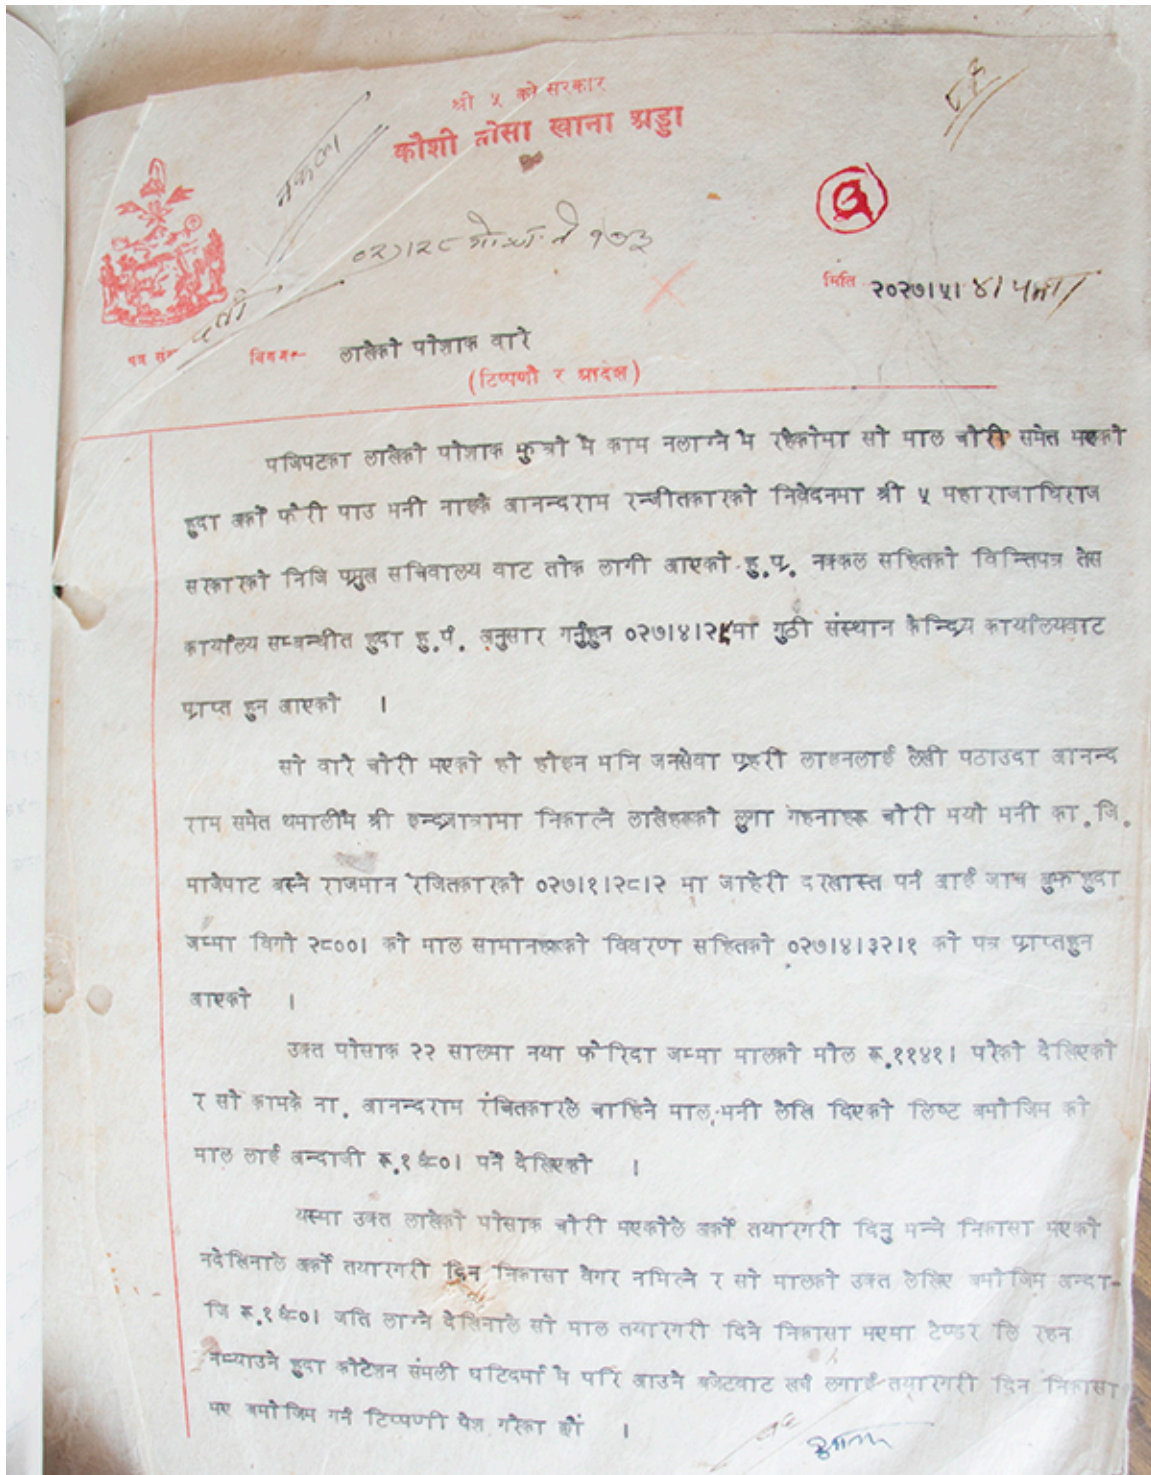 श्री ५ को सरकार
कौशी तोसा खाना अड्डा
नक्कल
०२७।२८ गो.श्वा. नं १७३
मिति २०२७।५।४।५
दर्ता
पत्र सं
विषय:- लाखेको पोशाक वारे
(टिप्पणी र आदेश)
पजिपटका लाखेको पोशाक झुत्रो भै काम नलाग्ने भै रहेकोमा सो माल चोरी समेत भएको
हुदा अर्को फेरी पाउ भनी नाइके आनन्दराम रन्जीतकारको निवेदनमा श्री ५ महाराजाधिराज
सरकारको निजि प्रमुख सचिवालय वाट तोक लागी आएको हु.प्र. नक्कल सहितको विन्तिपत्र तेस
कार्यालय सम्बन्धीत हुदा हु.पं. अनुसार गर्नुहुन ०२७।४।२५मा गुठी संस्थान केन्द्रिय कार्यालयवाट
प्राप्त हुन आएको ।
सो वारे चोरी भएको हो होइन भनि जनसेवा प्रहरी लाइनलाई लेखी पठाउदा आनन्द
राम समेत थमालीमै श्री इन्द्रजात्रामा निकाल्ने लाखेहरूको लुगा गहनाहरू चोरी भयो भनी का.जि.
माजेपाट वस्ने राजमान रंजितकारको ०२७।१।२८।२ मा जाहेरी दरखास्त पर्न आई जाच बुझ हुदा
जम्मा विगो २८००। को माल सामानहरूको विवरण सहितको ०२७।४।३२।१ को पत्र प्राप्तहुन
आएको ।
उक्त पोसाक २२ सालमा नया फेरिदा जम्मा मालको मोल रू.११४१। परेको देखिएको
र सो कामके ना. आनन्दराम रंजितकारले चाहिने माल भनी लेखि दिएको लिष्ट बमोजिम को
माल लाई अन्दाजी रू.१६८०। पर्ने देखिएको ।
यस्मा उक्त लाखेको पोसाक चोरी भएकोले अर्को तयारगरी दिनु भन्ने निकासा भएको
नदेखिनाले अर्को तयारगरी दिन निकासा वेगर नमिल्ने र सो मालको उक्त लेखिए बमोजिम अन्दा-
जि रू.१६८०। जति लाग्ने देखिनाले सो माल तयारगरी दिने निकासा भएमा टेण्डर लि रहन
नभ्याउने हुदा कोटेशन संमली घटिदर्मा भै परि आउने बजेटवाट खर्च लगाई तयारगरी दिन निकासा
भए बमोजिम गर्न टिप्पणी पेश गरेका छौं ।